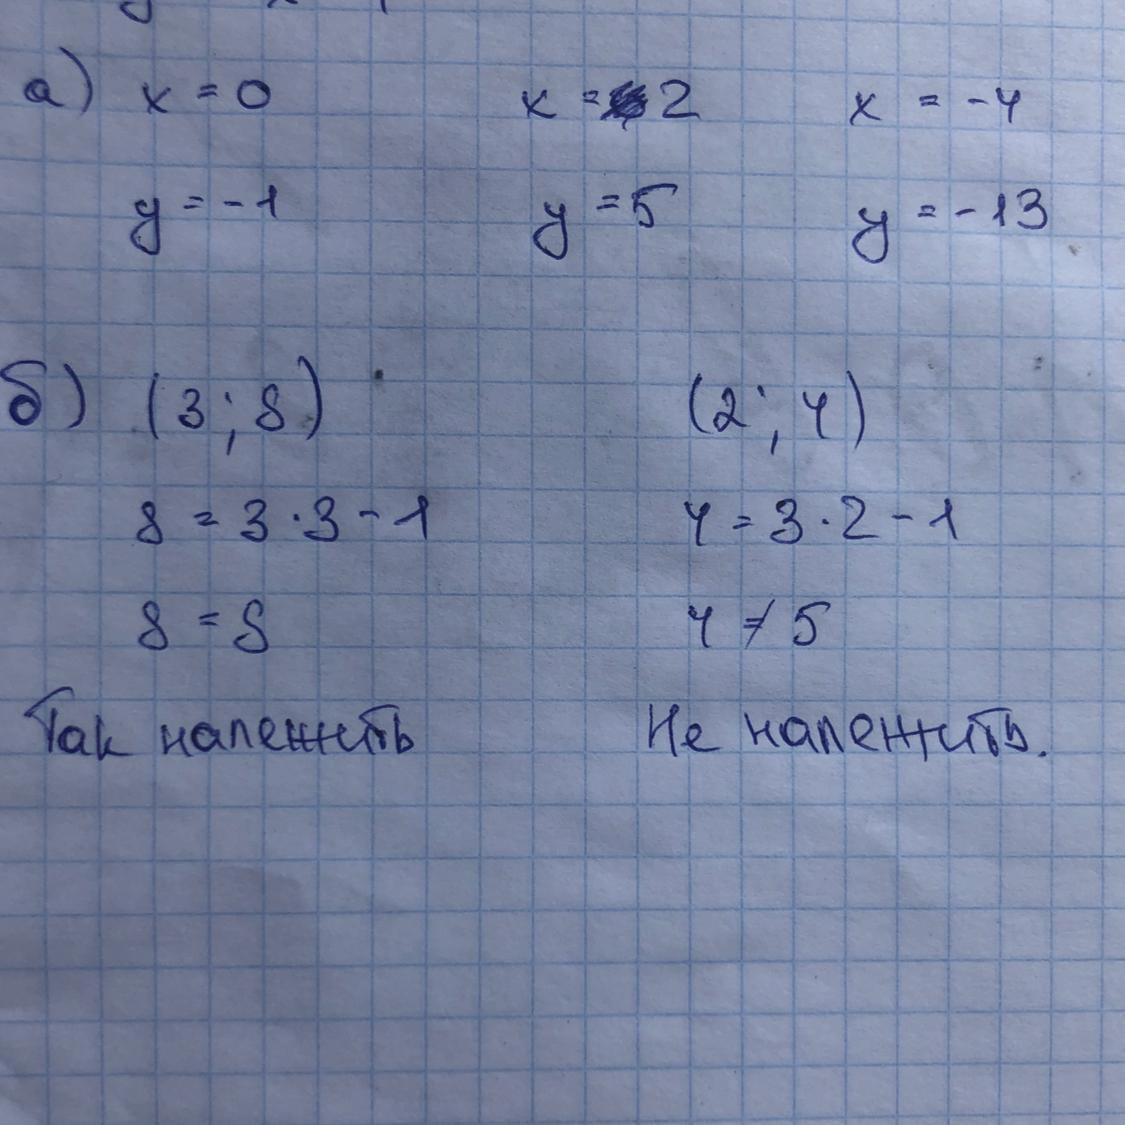 а) x = 0 x = 2 x = -4
y = -1 y = 5 y = -13
б) (3; 8) (2; 4)
8 = 3·3-1 4 = 3·2-1
8 = 8 4 ≠ 5
Так належить Не належить.